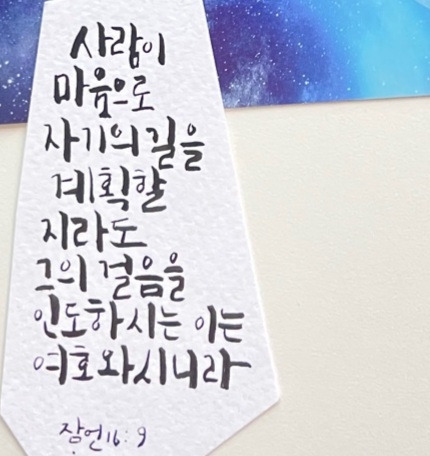 사람이
마음으로
자기의 길을
계획할
지라도
그의 걸음을
인도하시는 이는
여호와시니라
잠언 16:9